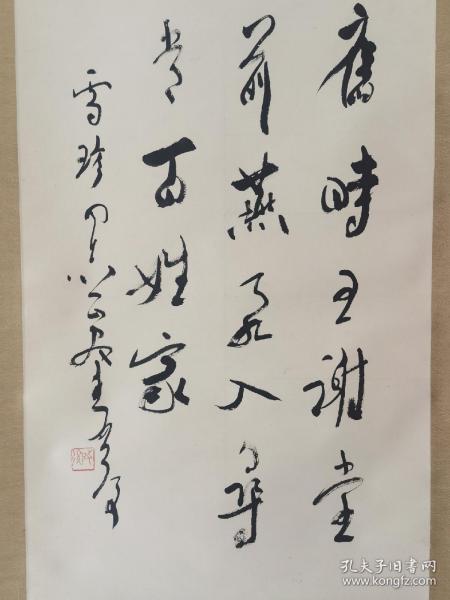 舊時王謝堂
前燕飛入尋
常百姓家
雪珍
孔夫子旧书网
www.kongfz.com